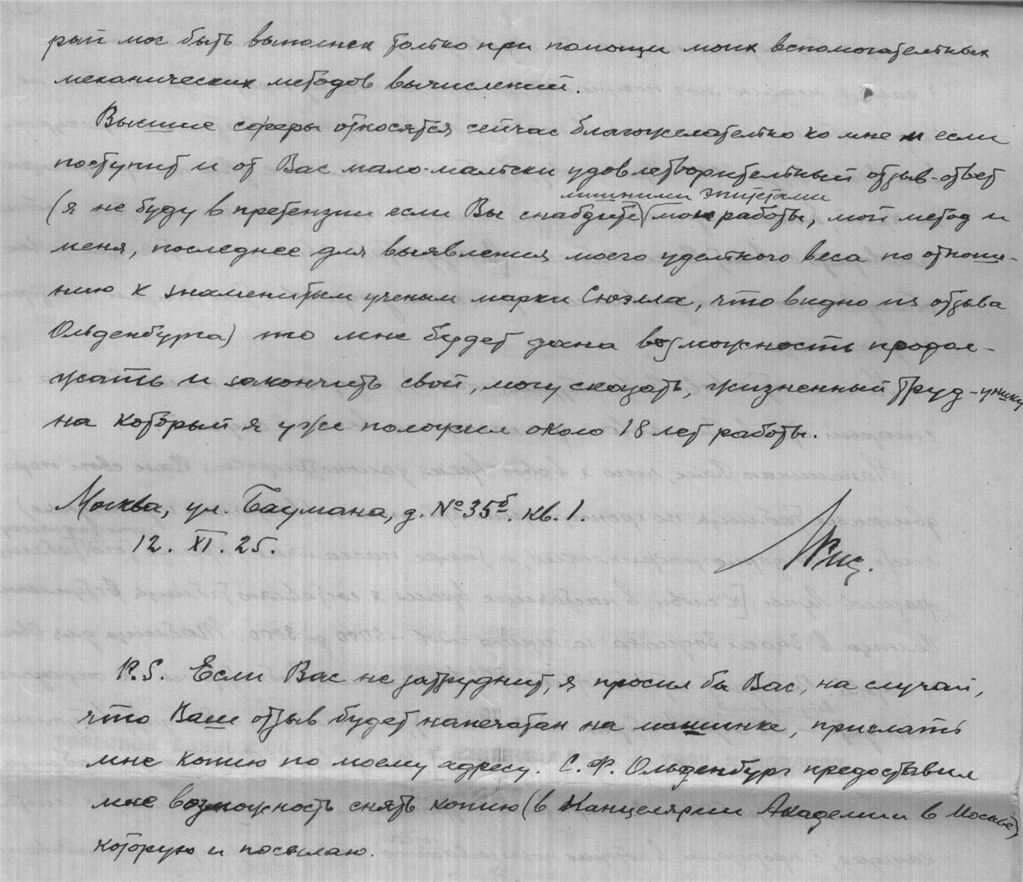 рый мог быть выполнен только при помощи моих вспомогательных
механических методов вычислений.
Высшие сферы относятся сейчас благожелательно ко мне и если
поступит и от Вас мало-мальски удовлетворительный отзыв-ответ
лишними эпитетами
(я не буду в претензии если Вы снабдите мои работы, мой метод и
меня, последнее для выявления моего удельного веса по отноше-
нию к знаменитым ученым марки Сюэлла, что видно из отзыва
Ольденбурга) то мне будет дана возможность продол-
жать и закончить свой, могу сказать, жизненный труд-унику
на который я уже положил около 18 лет работы.
Москва, ул. Баумана, д. № 35б. кв. 1.
12. XI. 25.
P.S. Если Вас не затруднит, я просил бы Вас, на случай,
что Ваш отзыв будет напечатан на машинке, прислать
мне копию по моему адресу. С. Ф. Ольденбург предоставил
мне возможность снять копию (в Канцелярии Академии в Москве)
которую и посылаю.